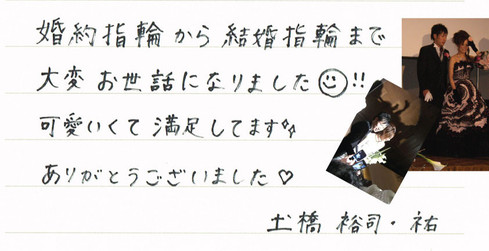 婚約指輪から結婚指輪まで
大変お世話になりました☺!!
可愛いくて満足してます✨
ありがとうございました♡
土橋 裕司・祐